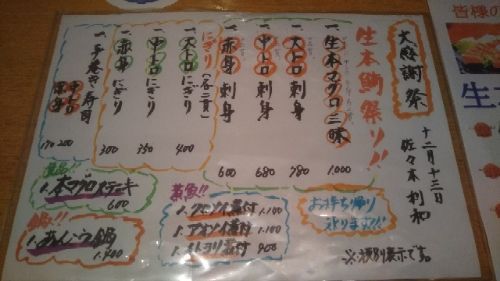 大感謝祭
十二月十三日
佐々木利和
生本鮪祭り!!
一.生本マグロ三昧 1.000
一.大トロ刺身 780
一.中トロ刺身 680
一.赤身刺身 600
にぎり(各二貫)
一.大トロにぎり 400
一.中トロにぎり 350
一.赤身にぎり 300
一.手巻き寿司
中トロ 200
赤身
逸品!!
1.本マグロステーキ 600
鍋!!
1.あんこう鍋 1.400
煮魚!!
1.クロソイ煮付 1.100
1.アオソイ煮付 1.100
煮付 900
お持ち帰り
承ります!!
※税別表示です。
皆様の
生